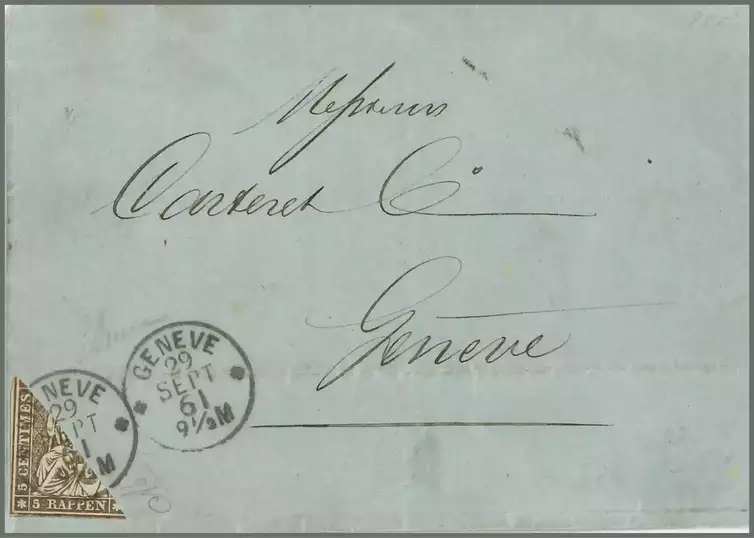 Messieurs
Carteret & Cº
Genève
GENEVE
29
SEPT
61
9½M
NEVE
29
PT
1
M
5 CENTIMES
5 RAPPEN